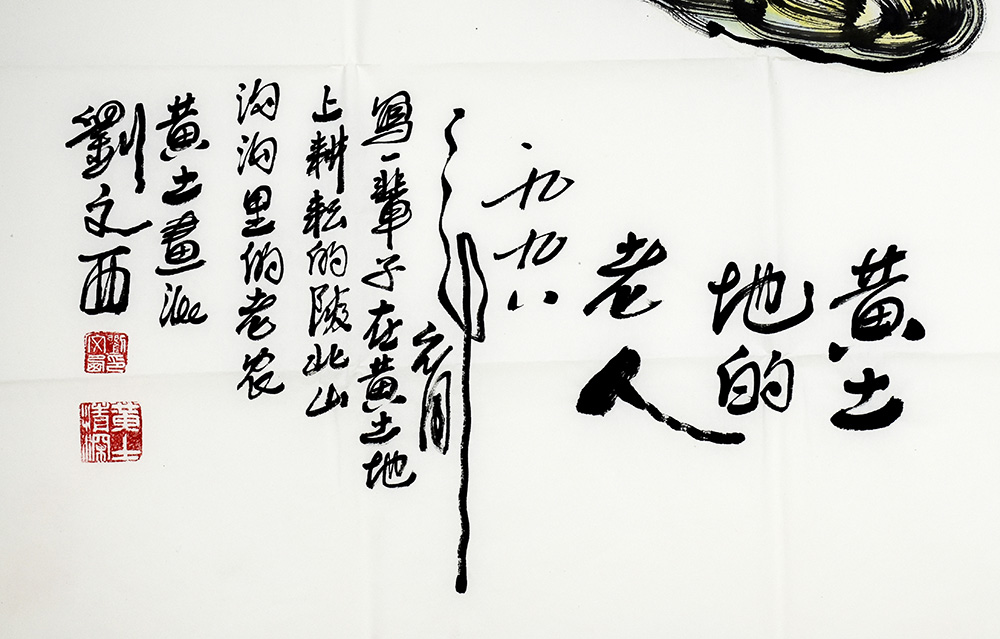 黄土
地的
老人
一九九八
年
元月
寫一輩子在黄土地
上耕耘的陕北山
沟沟里的老农
黄土畫派
劉文西
劉文西印
黄土情深